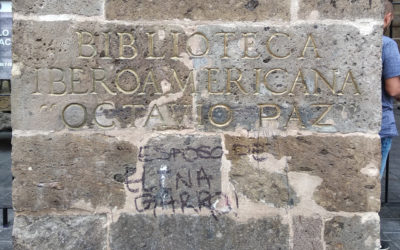 BIBLIOTECA
IBEROAMERICANA
"OCTAVIO PAZ"
ESPOSO DE
ELENA
GARRO